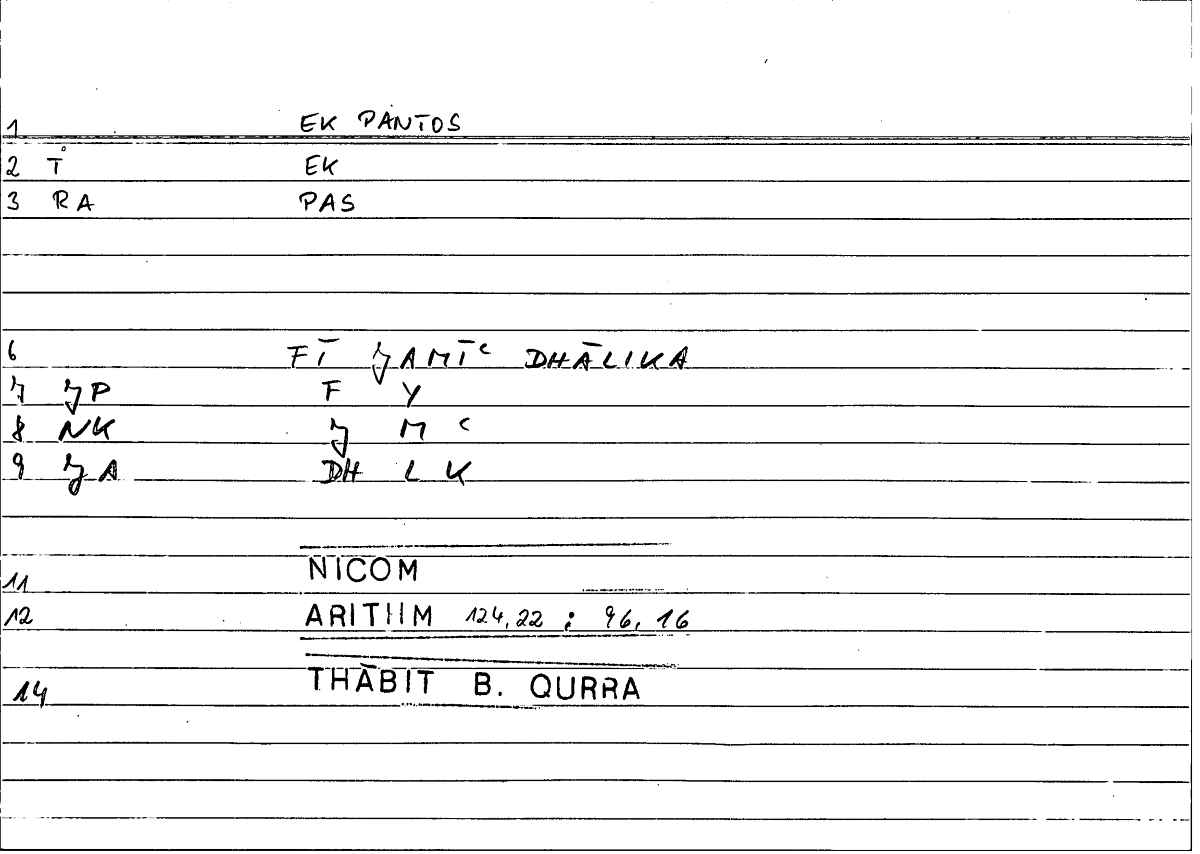 1 EK PANTOS
2 T EK
3 RA PAS
6 FĪ JAMĪʿ DHĀLIKA
7 JP F Y
8 NK J M ʿ
9 JA DH L K
11 NICOM
12 ARITHM 124,22 ; 96,16
14 THĀBIT B. QURRA